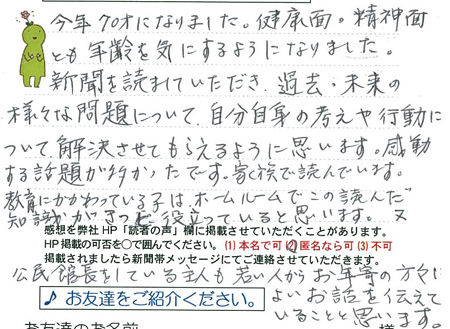 今年70才になりました。健康面。精神面
とも年齢を気にするようになりました。
新聞を読ませていただき、過去・未来の
様々な問題について、自分自身の考えや行動に
ついて、解決させてもらえるように思います。感動
する話題が多かったです。家族で読んでいます。
教育にかかわっている子はホームルームでこの読んだ
知識がきっと役立っていると思います。又
感想を弊社HP「読者の声」欄に掲載させていただくことがあります。
HP掲載の可否を○で囲んでください。 (1)本名で可 (2)匿名なら可 (3)不可
掲載されましたら新聞帯メッセージにてご連絡させていただきます。
公民館長をしている主人も若い人からお年寄の方々に
よいお話を伝えて
いることと思います。
♪ お友達をご紹介ください。
お友達のお名前 様